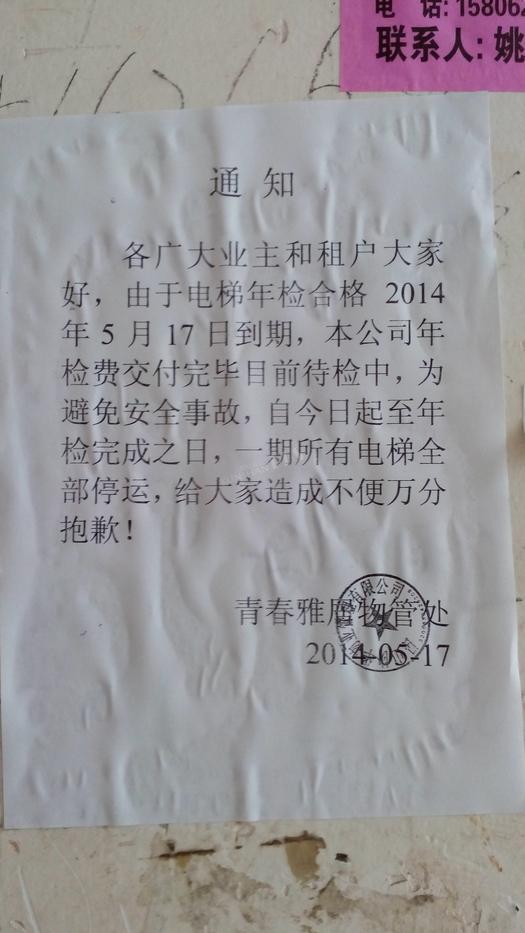 电 话: 15806
联系人: 姚
通 知
各广大业主和租户大家
好，由于电梯年检合格 2014
年 5 月 17 日到期，本公司年
检费交付完毕目前待检中，为
避免安全事故，自今日起至年
检完成之日，一期所有电梯全
部停运，给大家造成不便万分
抱歉！
青春雅居物管处
2014-05-17
有限公司